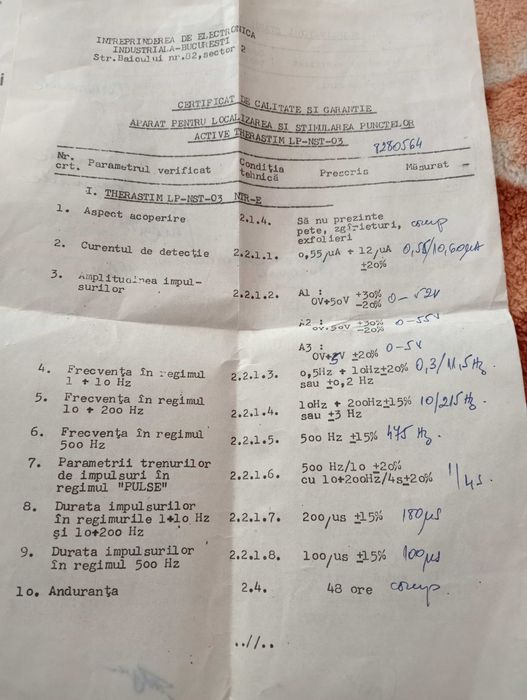 INTREPRINDEREA DE ELECTRONICA
INDUSTRIALA-BUCURESTI
Str.Baicului nr.82,sector 2
CERTIFICAT DE CALITATE SI GARANTIE
APARAT PENTRU LOCALIZAREA SI STIMULAREA PUNCTELOR
ACTIVE THERASTIM LP-NST-03 9280564
Nr. crt. Parametrul verificat Condiția tehnică Prescris Măsurat
I. THERASTIM LP-NST-03 NTR-E
1. Aspect acoperire 2.1.4. Să nu prezinte
pete, zgîrieturi, coresp
exfolieri
2. Curentul de detecție 2.2.1.1. 0,55/uA + 12/uA 0,55/10,60µA
±20%
3. Amplitudinea impul-
surilor 2.2.1.2. A1 :
0V+50V +30% -20% 0-52V
A2 :
0V+50V +30% -20% 0-55V
A3 :
0V+5V ±20% 0-5V
4. Frecvența în regimul
1 + 10 Hz 2.2.1.3. 0,5Hz + 10Hz±20% 0,3/11,5Hz.
sau ±0,2 Hz
5. Frecvența în regimul
10 + 200 Hz 2.2.1.4. 10Hz + 200Hz±15% 10/215Hz.
sau ±3 Hz
6. Frecvența în regimul
500 Hz 2.2.1.5. 500 Hz ±15% 475 Hz.
7. Parametrii trenurilor
de impulsuri în
regimul "PULSE" 2.2.1.6. 500 Hz/10 ±20%
cu 10+200Hz/4s±20% 1/4s.
8. Durata impulsurilor
în regimurile 1+10 Hz
și 10+200 Hz 2.2.1.7. 200/us ±15% 180µs
9. Durata impulsurilor
în regimul 500 Hz 2.2.1.8. 100/us ±15% 100µs
10. Anduranța 2.4. 48 ore coresp.
..//..